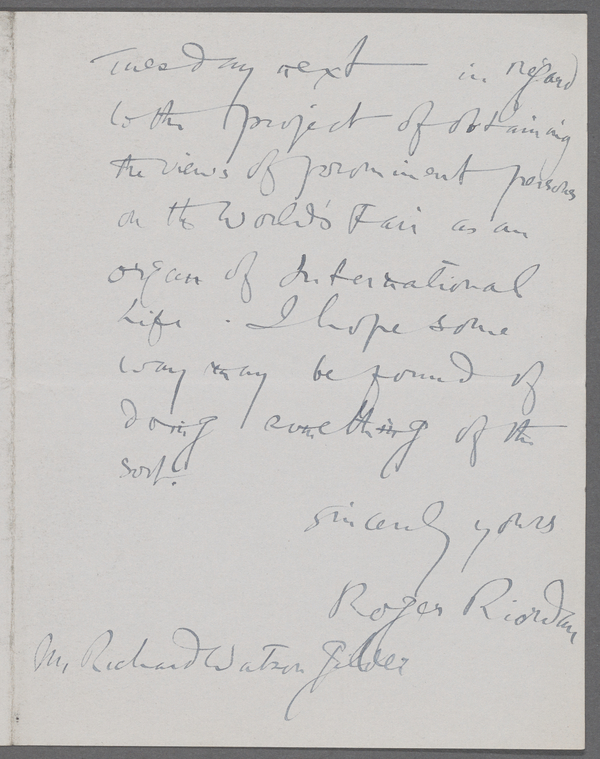 Tuesday next — in regard
to the project of obtaining
the views of prominent persons
on the World's Fair as an
organ of International
Life. I hope some
way may be found of
doing something of the
sort.
Sincerely yours
Roger Riordan
Mr Richard Watson Gilder